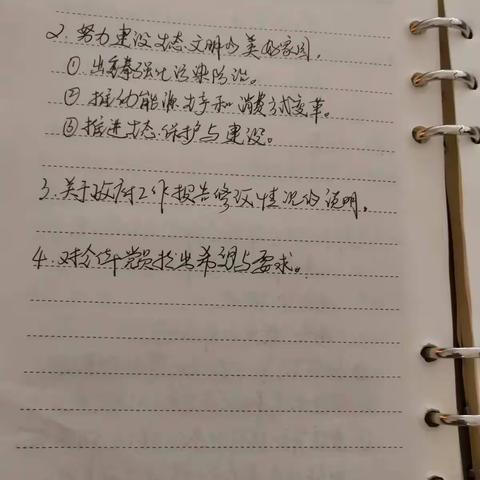 2. 努力建设生态文明的美好家园。
① 出重拳强化污染防治。
② 推动能源生产和消费方式变革。
③ 推进生态保护与建设。
3. 关于政府工作报告修改情况的说明。
4. 对全体党员提出希望与要求。